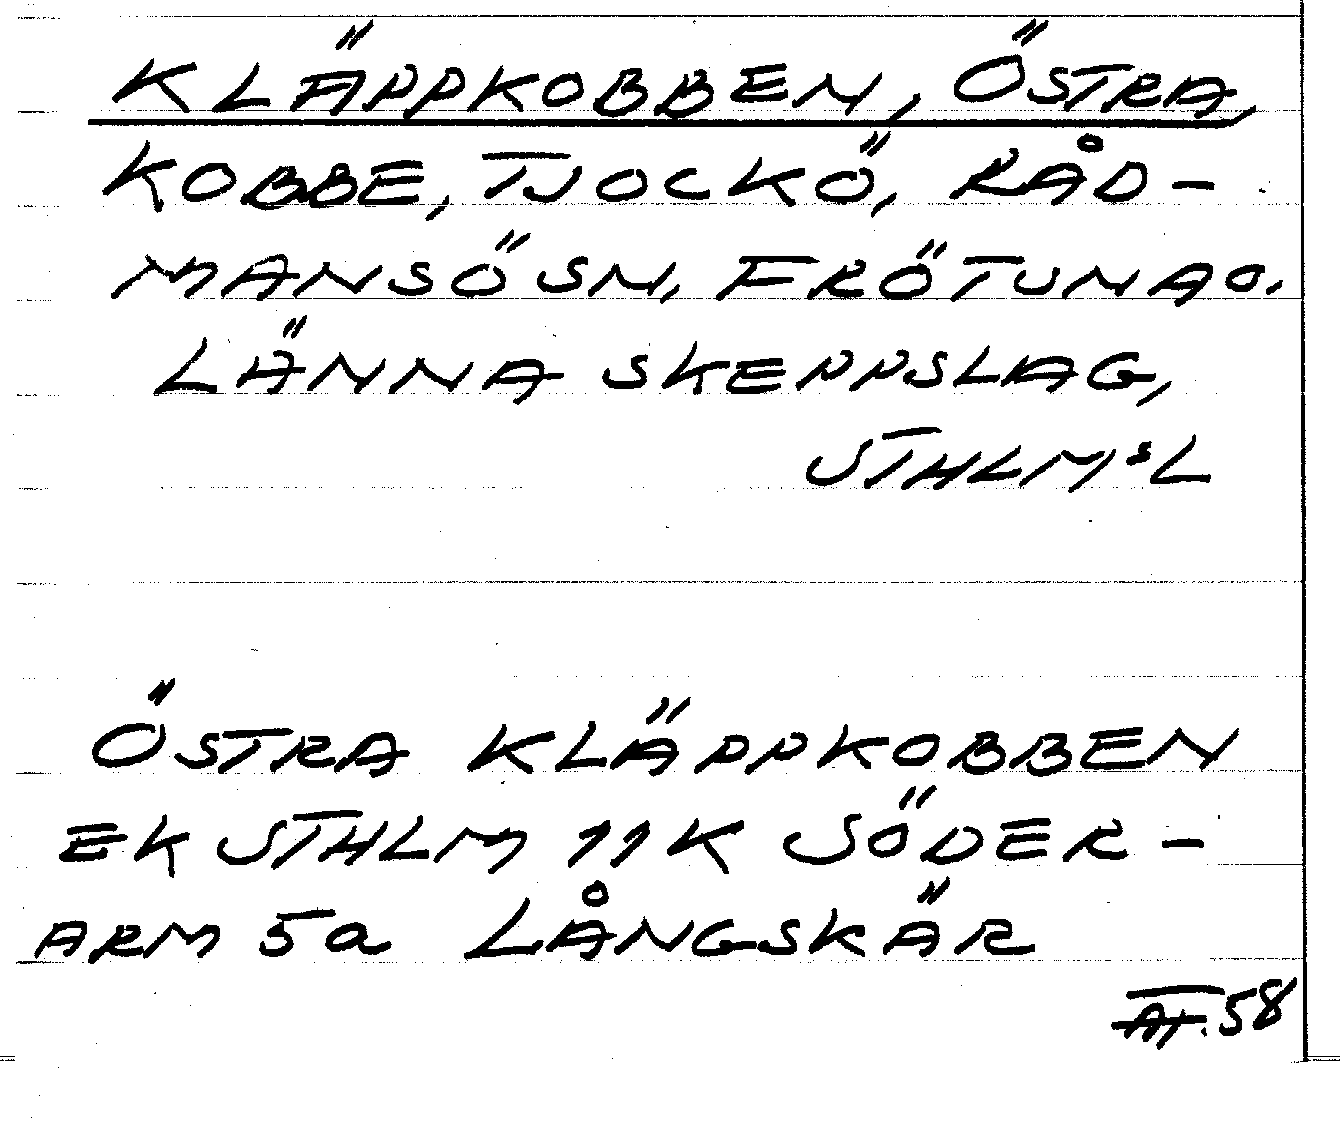 KLÄPPKOBBEN, ÖSTRA,
KOBBE, TJOCKÖ, RÅD-
MANSÖ SN, FRÖTUNA O.
LÄNNA SKEPPSLAG,
STHLMsL
ÖSTRA KLÄPPKOBBEN
EK STHLM 11K SÖDER-
ARM 5a LÅNGSKÄR
58